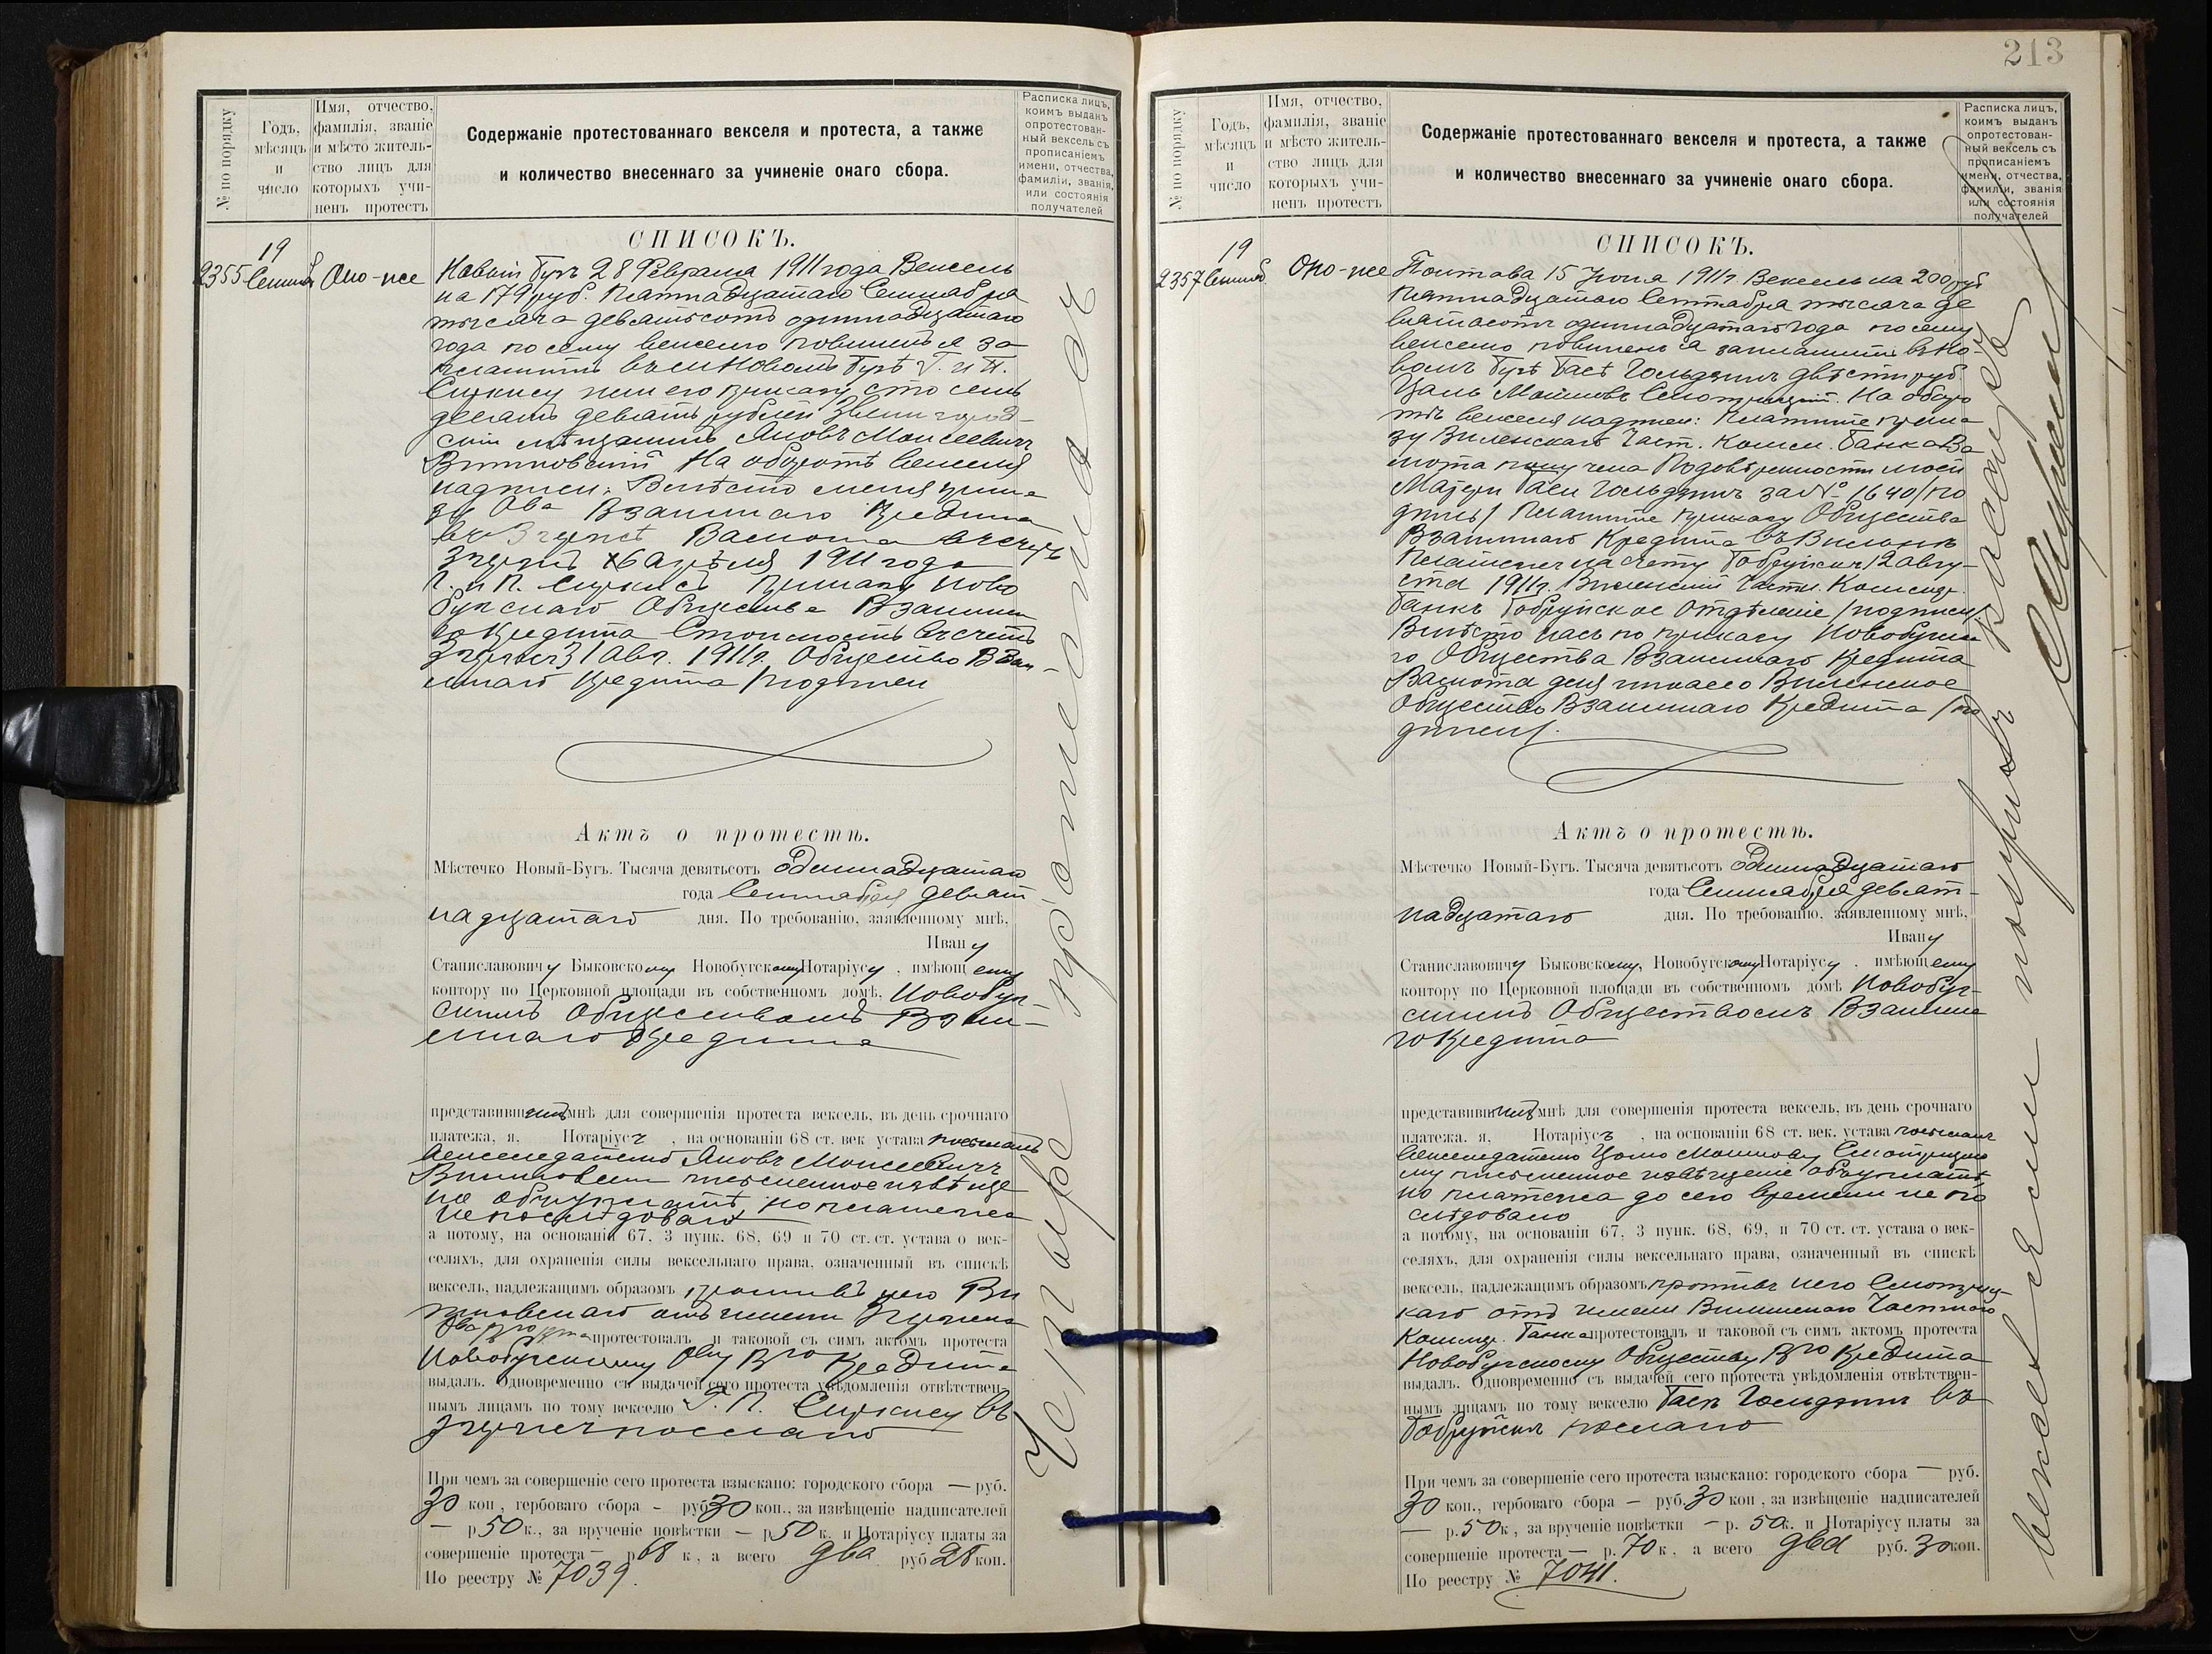 № по порядку
Годъ, мѣсяцъ и число
Имя, отчество, фамилія, званіе и мѣсто жительство лицъ для которыхъ учиненъ протестъ
Содержаніе протестованнаго векселя и протеста, а также
и количество внесеннаго за учиненіе онаго сбора.
Расписка лицъ, коимъ выданъ опротестованный вексель съ прописаніемъ имени, отчества, фамиліи, званія, или состоянія получателей
СПИСОКЪ.
19
2355
Оно-же
Новый Бугъ 28 Февраля 1911 года Вексель
на 179 руб. Пятнадцатаго Сентября
тысяча девятьсотъ одиннадцатаго
года по сему векселю повиненъ я за-
платить въ Новомъ Бугѣ Г. и П.
или его приказу сто семь
десятъ девять рублей
мѣщанинъ Яковъ Моисеевичъ
На оборотѣ векселя
надписи: Вмѣсто меня
Ова Взаимнаго Кредита
Валюта
1911 года
Г. и П. приказу Ново
бугскаго Общества Взаимна
го Кредита Стоимость въ счетъ
31 Авг. 1911 г. Общество Взаи-
мнаго Кредита /подписи
Актъ о протестѣ.
Мѣстечко Новый-Бугъ. Тысяча девятьсотъ одиннадцатаго
года Сентября девят-
надцатаго дня. По требованію, заявленному мнѣ,
Ивану
Станиславовичу Быковскому Новобугскому Нотаріусу, имѣющему
контору по Церковной площади въ собственномъ домѣ, Новобуг-
скимъ Обществомъ Взаи-
мнаго Кредита
представившимъ мнѣ для совершенія протеста вексель, въ день срочнаго
платежа, я, Нотаріусъ, на основаніи 68 ст. век устава послалъ
векселедателю Якову Моисеевичу
письменное извѣще
ніе но платежа
не послѣдовало
а потому, на основаніи 67, 3 пунк. 68, 69 и 70 ст. ст. устава о век-
селяхъ, для охраненія силы вексельнаго права, означенный въ спискѣ
вексель, надлежащимъ образомъ противъ него Ви
отъ имени
протестовалъ и таковой съ симъ актомъ протеста
Новобугскому Ову Вго Кредита
выдалъ. Одновременно съ выдачей сего протеста увѣдомленія отвѣтствен-
нымъ лицамъ по тому векселю Г. П. въ
послано
При чемъ за совершеніе сего протеста взыскано: городского сбора — руб.
30 коп, гербоваго сбора - руб 30 коп., за извѣщеніе надписателей
— р. 50 к., за врученіе повѣстки — р. 50 к. и Нотаріусу платы за
совершеніе протеста — р 68 к, а всего два руб 28 коп.
По реестру № 7039.
213
№ по порядку
Годъ, мѣсяцъ и число
Имя, отчество, фамилія, званіе и мѣсто жительство лицъ для которыхъ учиненъ протестъ
Содержаніе протестованнаго векселя и протеста, а также
и количество внесеннаго за учиненіе онаго сбора.
Расписка лицъ, коимъ выданъ опротестованный вексель съ прописаніемъ имени, отчества, фамиліи, званія или состоянія получателей
СПИСОКЪ.
19
2357
Оно-же
15 1911 г. Вексель на 200 руб
Пятнадцатаго Сентября тысяча де
вятьсотъ одиннадцатаго года по сему
векселю повиненъ я заплатить въ Но-
вомъ Бугѣ Басѣ Гольдзинъ двѣсти руб.
На оборо
тѣ векселя надписи: Платите прика
зу Виленскаго Част. Комм. Банка Ва
люта получена По довѣренности моей
Матери Баси Гольдзинъ за № 1640 /по
дпись/ Платите приказу Общества
Взаимнаго Кредита въ Вильнѣ
Бобруйскъ 12 Авгу-
ста 1911 г. Виленскій Частн. Коммер.
Банкъ Бобруйское Отдѣленіе /подписи/
Вмѣсто насъ по приказу Новобугска
го Общества Взаимнаго Кредита
Валюта для инкассо Виленское
Общество Взаимнаго Кредита /по
дписи/.
Актъ о протестѣ.
Мѣстечко Новый-Бугъ. Тысяча девятьсотъ одиннадцатаго
года Сентября девят-
надцатаго дня. По требованію, заявленному мнѣ,
Ивану
Станиславовичу Быковскому, Новобугскому Нотаріусу, имѣющему
контору по Церковной площади въ собственномъ домѣ Новобуг-
скимъ Обществомъ Взаимна
го Кредита
представившимъ мнѣ для совершенія протеста вексель, въ день срочнаго
платежа. я, Нотаріусъ, на основаніи 68 ст. век. устава послалъ
векселедателю
му письменное извѣщеніе
но платежа до сего времени не по
слѣдовало
а потому, на основаніи 67, 3 пунк. 68, 69, и 70 ст. ст. устава о век-
селяхъ, для охраненія силы вексельнаго права, означенный въ спискѣ
вексель, надлежащимъ образомъ противъ него Смотриц-
каго отъ имени Виленскаго Частнаго
Коммер. Банка протестовалъ и таковой съ симъ актомъ протеста
Новобугскому Обществу Вго Кредита
выдалъ. Одновременно съ выдачей сего протеста увѣдомленія отвѣтствен-
нымъ лицамъ по тому векселю Басѣ Гольдзинъ въ
Бобруйскъ послано
При чемъ за совершеніе сего протеста взыскано: городского сбора — руб.
30 коп., гербоваго сбора — руб. 30 коп, за извѣщеніе надписателей
— р. 50 к, за врученіе повѣстки — р. 50 к. и Нотаріусу платы за
совершеніе протеста — р. 70 к, а всего два руб. 30 коп.
По реестру № 7041.
Четыре протеста съ
векселями получилъ